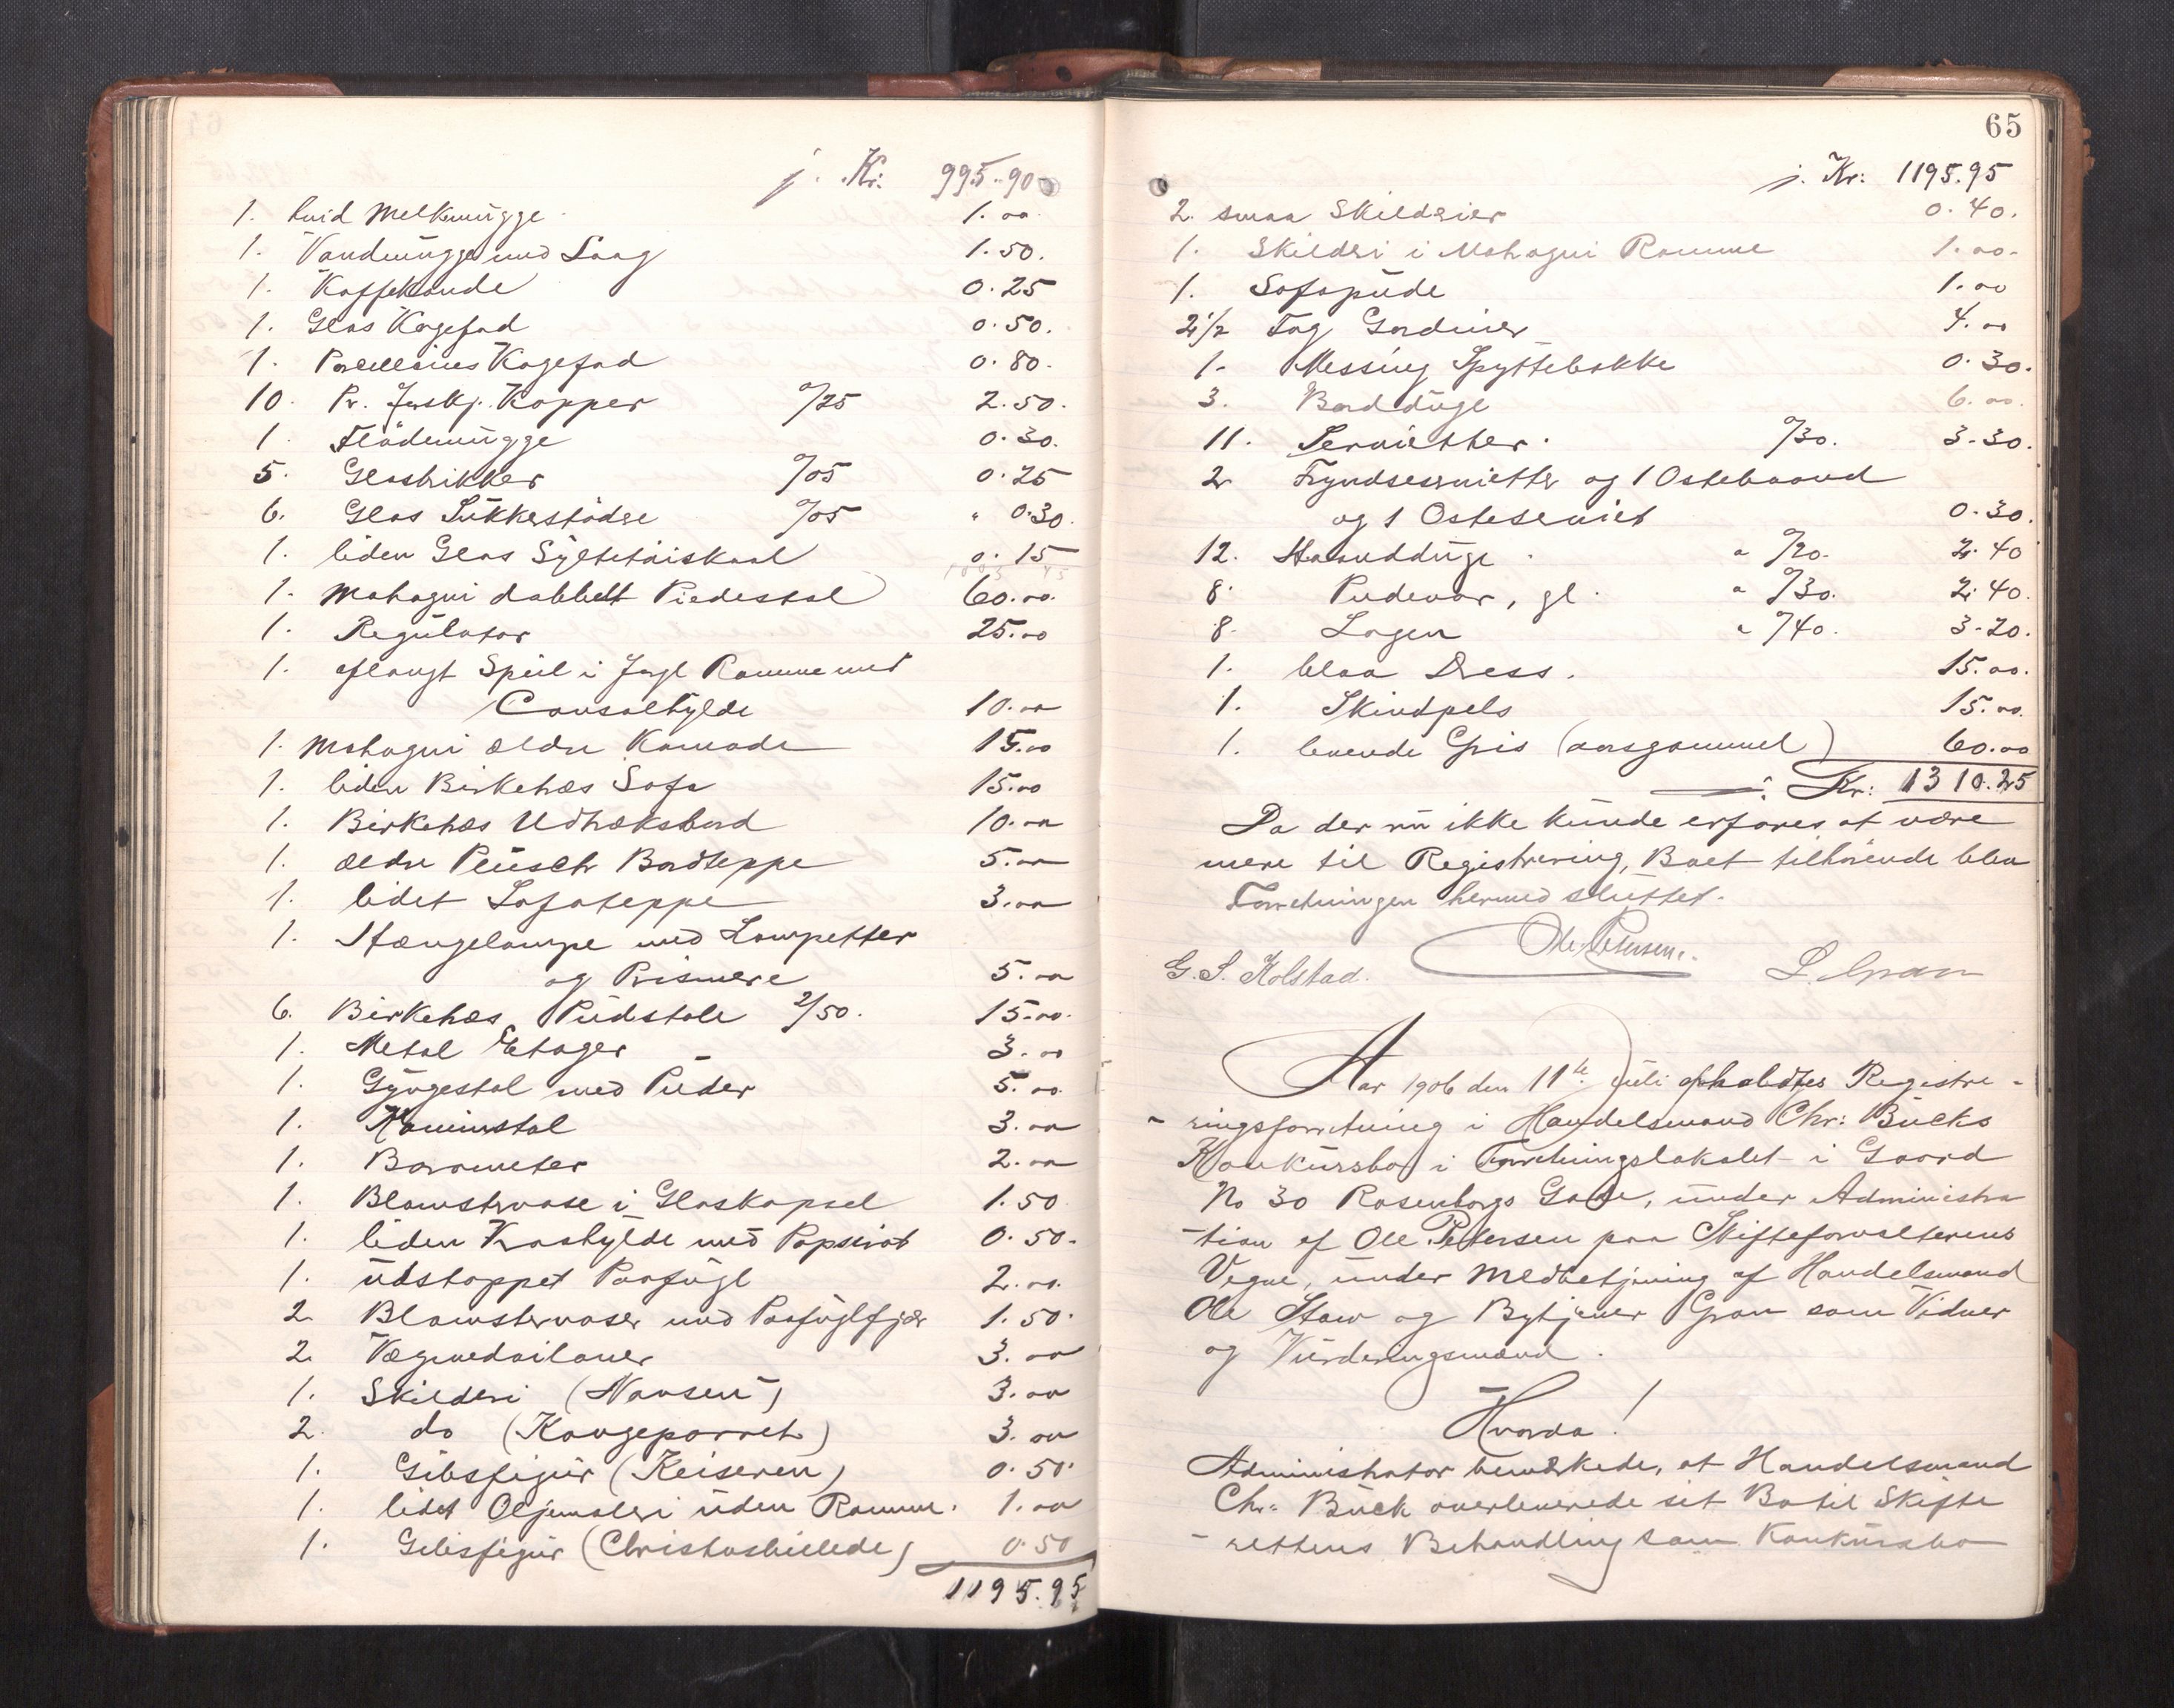 j. Kr: 995.90
1. hvid Melkmugge 1.00
1. Vandmugge med Laag 1.50.
1. Kaffekande 0.25
1. Glas Kagefad 0.50.
1. Porcellains Kagefad 0.80.
10. Pr. Kopper 0/25 2.50.
1. Flødemugge 0.30.
5. Glasbrikker 0/05 0.25
6. Glas Sukkerstødere 0/05 " 0.30.
1. liden Glas Syltetøiskaal 0.15
1. Mahogni dobbelt Piedestal 60.00
1. Regulator 25.00
1. aflangt Speil i Forgl Ramme med
Consolhylde 10.00
1. Mahogni ældre Komode 15.00
1. liden Birketræs Sofa 15.00
1. Birketræs Udtræksbord 10.00
1. ældre Plüsch Bordteppe 5.00
1. lidet Sofateppe 3.00
1. Hængelampe med Lampetter
og Prismere 5.00
6. Birketræs Pudstole 2/50. 15.00.
1. Metal Etager 3.00
1. Gyngestol med Puder 5.00.
1. Kaminstol 3.00
1. Barometer 2.00
1. Blomstervase i Glaskapsel 1.50
1. liden Kroshylde med Papskrab 0.50.
1. udstoppet Paafugl 2.00.
2 Blomstervaser med Paafuglfjær 1.50.
2. Vægmedailoner 3.00
1. Skilderi (Nansen) 3.00
2. do (Kongeparret) 3.00
1. Gibsfigur (Keiseren) 0.50.
1. lidet Oljemaleri uden Ramme. 1.00
1. Gibsfigur (Christusbillede) 0.50
1195.95
65
j. Kr: 1195.95
2. smaa Skilderier 0.40.
1. Skilderi i Mahogni Ramme 1.00.
1. Sofapude 1.00
2 1/2 Fag Gardiner 4.00
1. Messing Spyttebakke 0.30.
3. Bordduge 6.00.
11. Servietter. 0/30. 3.30.
2 Fryndseservietter og 1 Ostebaand
og 1 Osteserviet 0.30.
12. Haandduge a 0/20. 2.40
8. Pudevar, gl. a 0/30. 2.40.
8. Lagen a 0/40. 3.20.
1. blaa Dress. 15.00.
1. Skindpels 15.00.
1. levende Gris (aarsgammel) 60.00
Kr: 1310.25
Da der nu ikke kunde erfares at være
mere til Registrering, Boet tilhørende blev
Forretningen hermed sluttet.
Ole Petersen.
G. S. Kolstad. L. Gran
Aar 1906 den 11te Juli afholdtes Registre-
-ringsforretning i Handelsmand Chr: Bucks
Konkursbo i Forretningslokalet i Gaard
No 30 Rosenborgs Gade, under Administra
-tion af Ole Petersen paa Skifteforvalterens
Vegne, under Medbetjening af Handelsmand
Ole Staw og Bytjener Gran som Vidner
og Vurderingsmænd.
Hvorda!
Administrator bemærkede, at Handelsmand
Chr: Buck overleverede sit Bo til Skifte
-rettens Behandling som Konkursbo